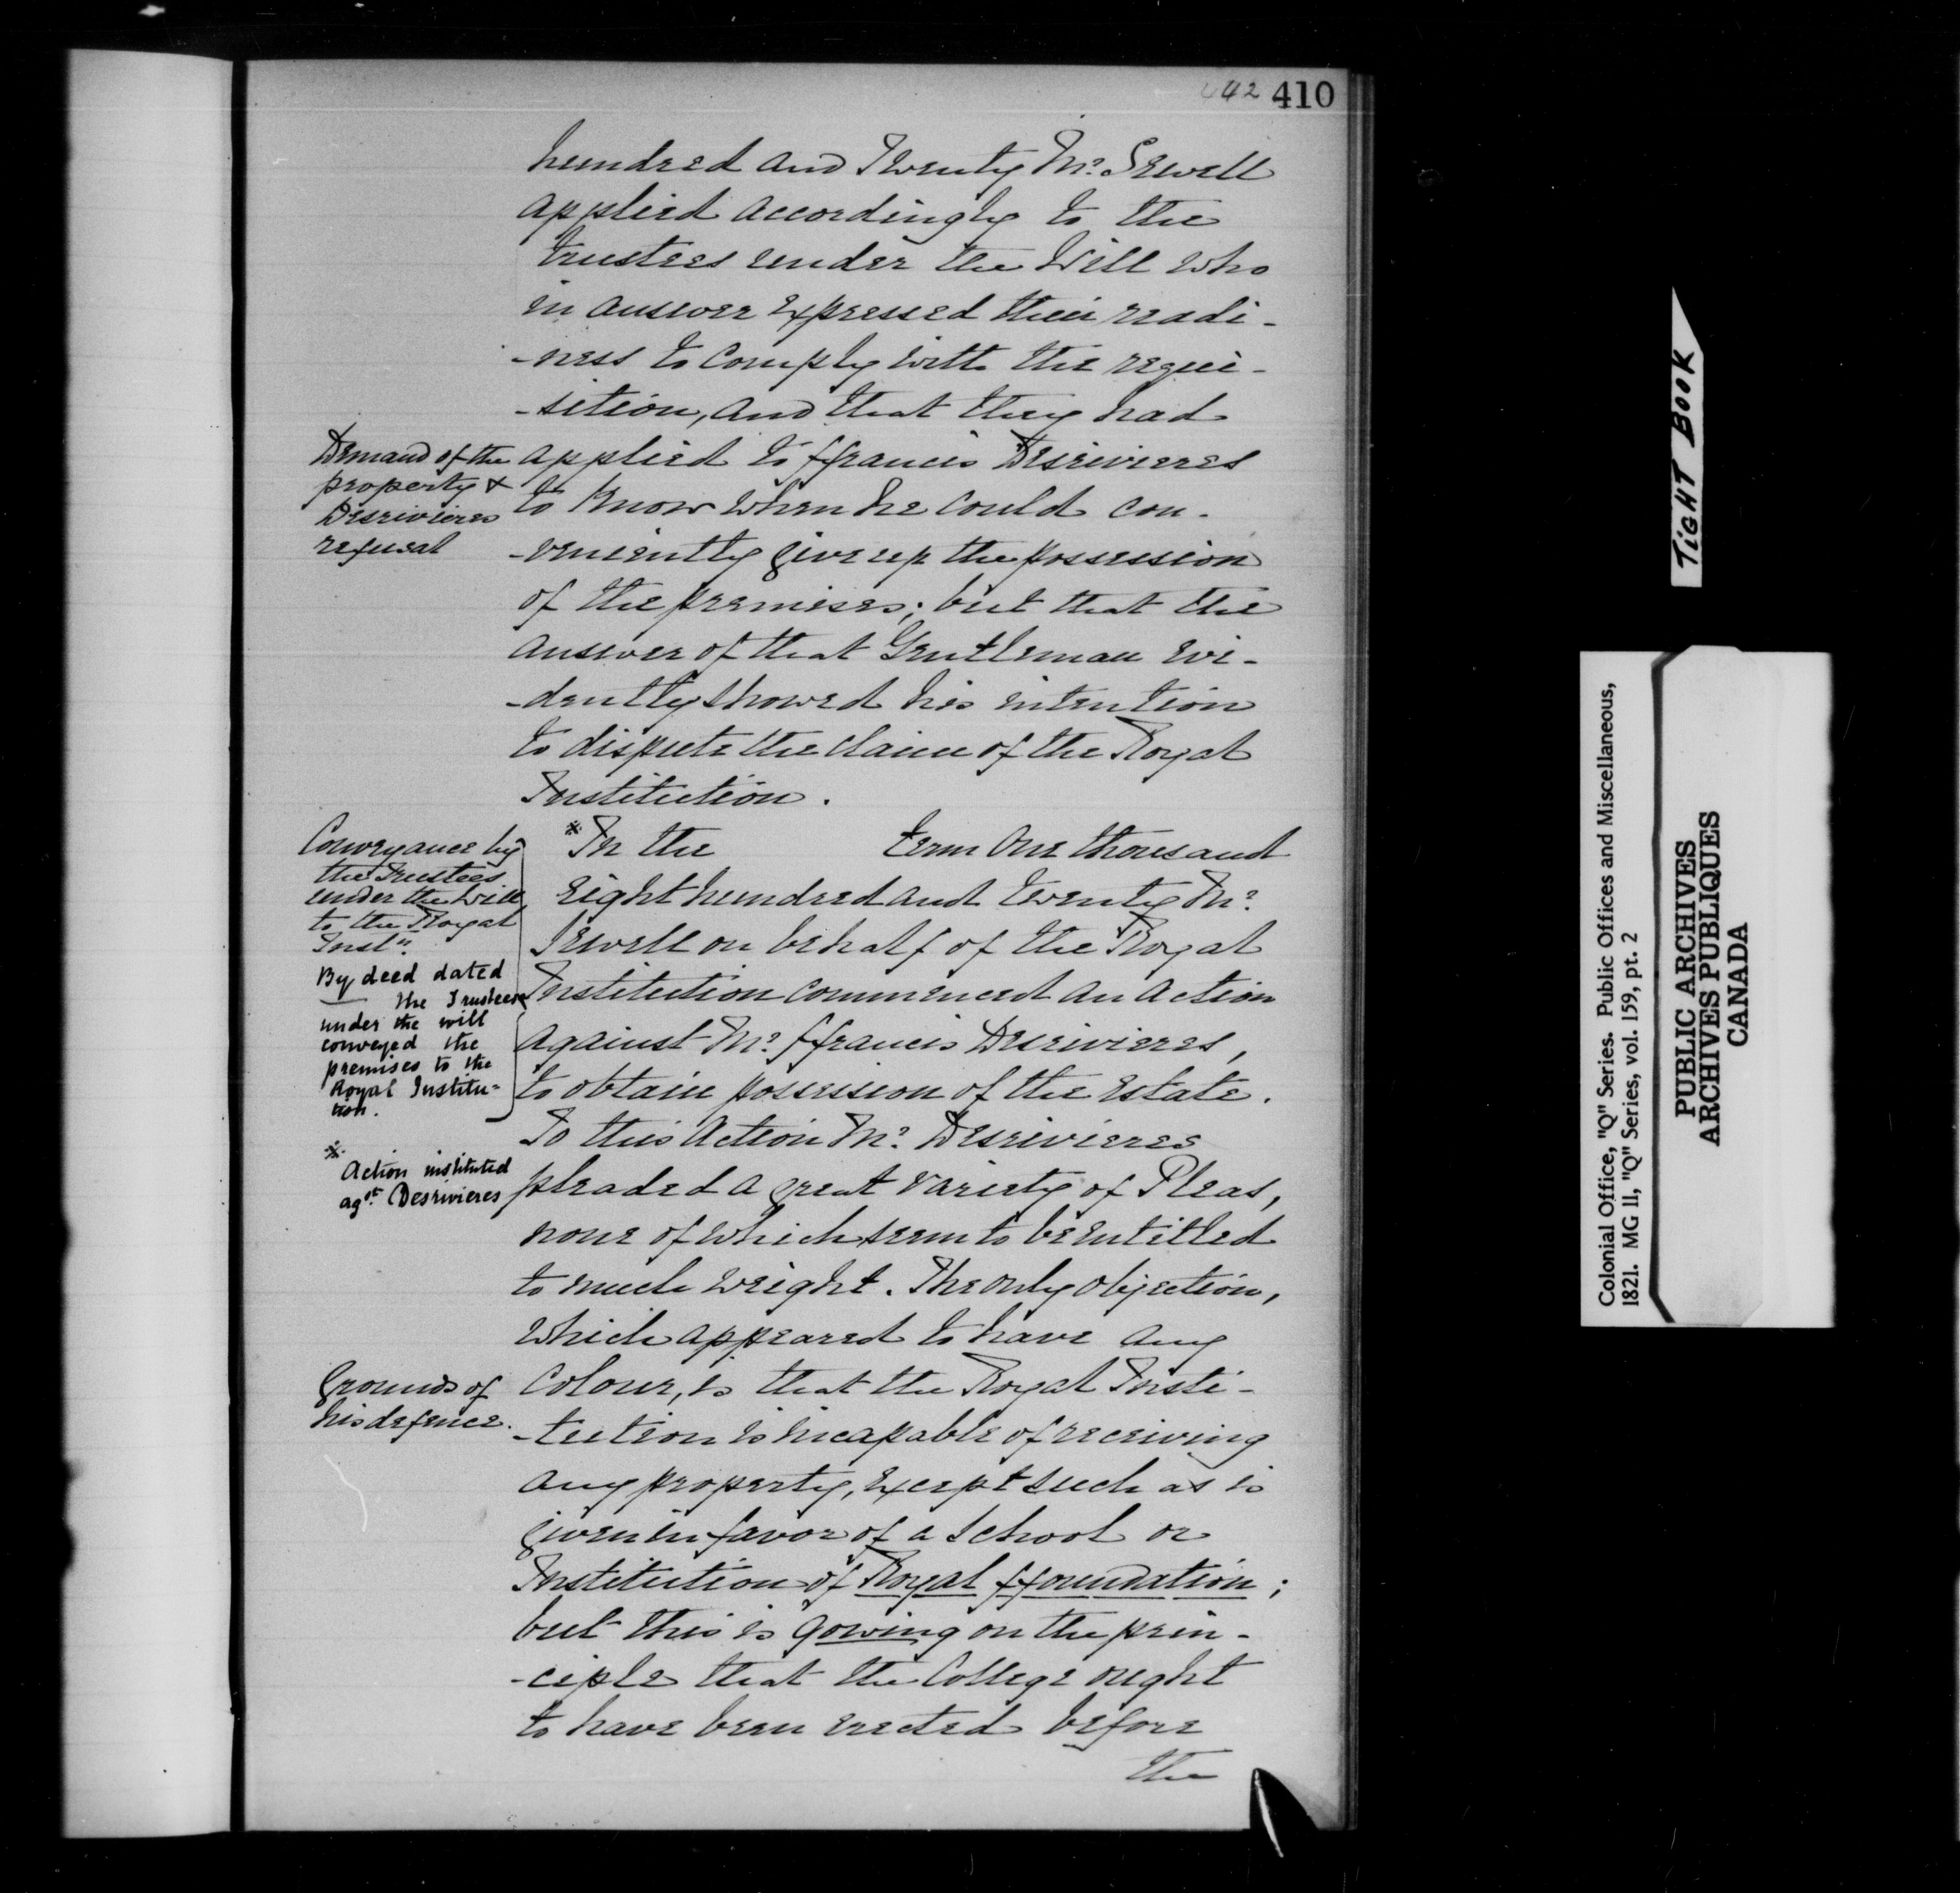 42 410
hundred and Twenty Mr. Sewell
applied accordingly to the
trustees under the Will who
in answer expressed their readi-
-ness to comply with the requi-
-sition, and that they had
Demand of the
property &
Desrivieres
refusal
applied to ffrancis Desrivieres
to know when he could con-
-veniently give up the possession
of the premises; but that the
answer of that Gentleman evi-
-dently showed his intention
to dispute the claim of the Royal
Institution.
Conveyance by
the Trustees
under the Will
to the Royal
Instn.
By deed dated
— the Trustees
under the will
conveyed the
premises to the
Royal Institu=
tion.
* In the term One thousand
Eight hundred and twenty Mr.
Sewell on behalf of the Royal
Institution commenced an action
against Mr. ffrancis Desrivieres,
to obtain possession of the Estate.
To this Action Mr. Desrivieres
*
Action instituted
agst. Desrivieres
pleaded a great variety of Pleas,
none of which seem to be entitled
to much weight. The only objection,
which appeared to have any
Grounds of
his defence.
colour, is that the Royal Insti-
-tution is incapable of receiving
any property, except such as is
given in favor of a School or
Institution of Royal ffoundation;
but this is gowing on the prin-
-ciple that the College ought
to have been erected before
the
TIGHT BOOK
Colonial Office, "Q" Series. Public Offices and Miscellaneous,
1821. MG 11, "Q" Series, vol. 159, pt. 2
PUBLIC ARCHIVES
ARCHIVES PUBLIQUES
CANADA